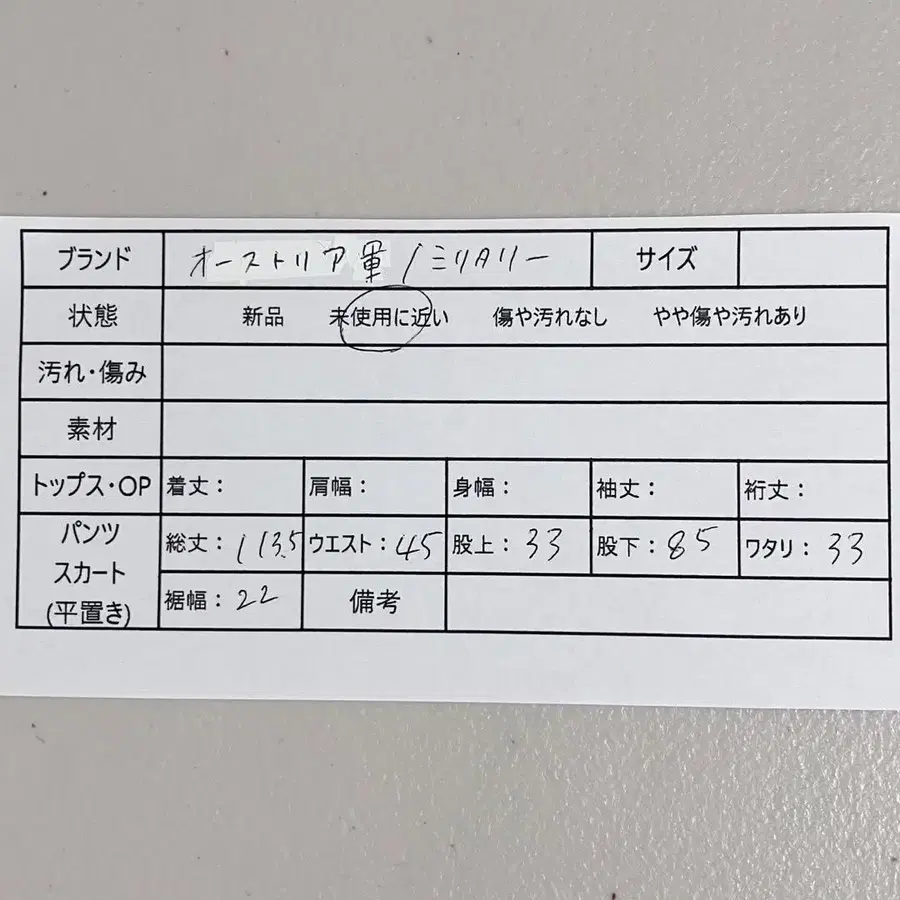 ブランド オーストリア軍/ミリタリー サイズ
状態 新品 未使用に近い 傷や汚れなし やや傷や汚れあり
汚れ・傷み
素材
トップス・OP 着丈: 肩幅: 身幅: 袖丈: 裄丈:
パンツ スカート (平置き) 総丈: 113.5 ウエスト: 45 股上: 33 股下: 85 ワタリ: 33
裾幅: 22 備考